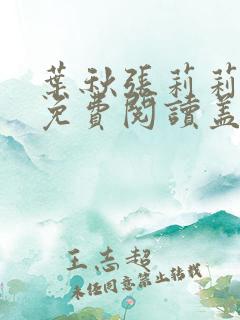 葉秋張莉莉
免費閱讀蓋
王志超
未经同意禁止转载